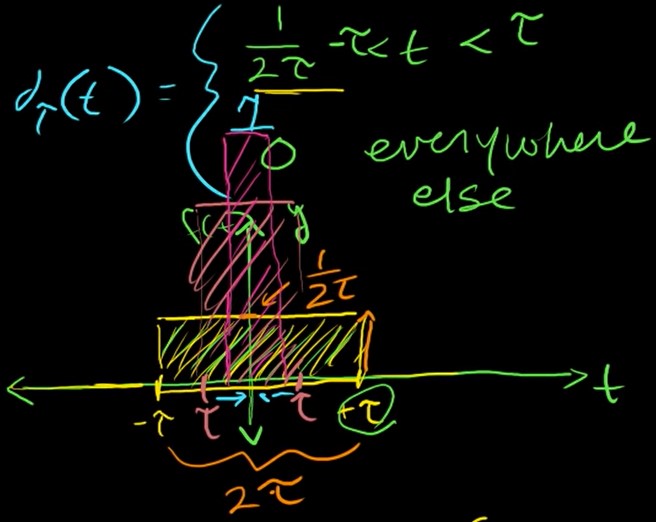 1/2τ -τ< t < τ
d_τ(t) =
0 everywhere
else
f(t) y
1/2τ
t
-τ τ τ +τ
2τ